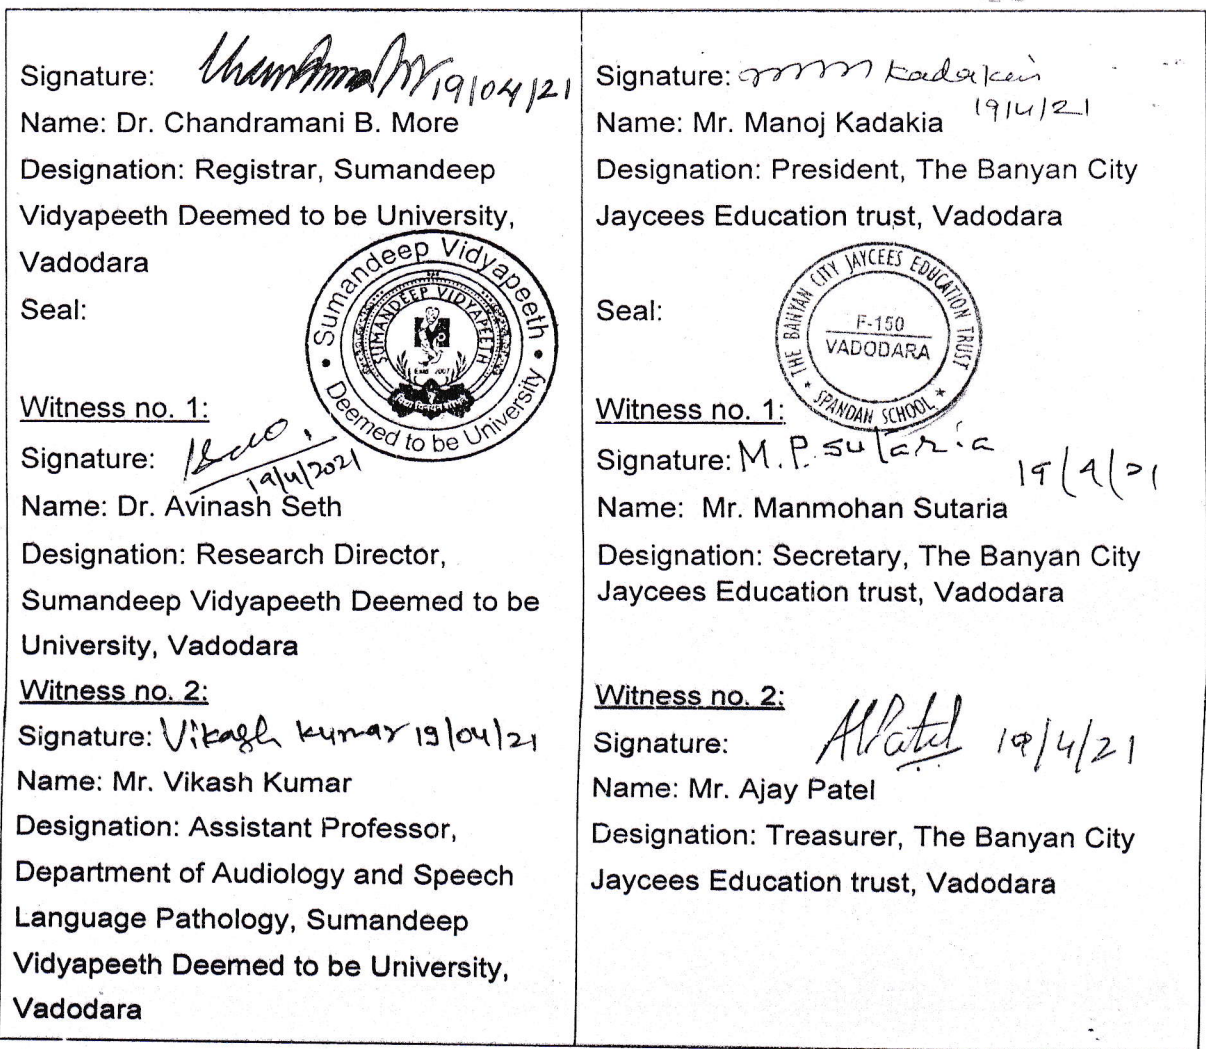 Signature: 19/04/21
Name: Dr. Chandramani B. More
Designation: Registrar, Sumandeep
Vidyapeeth Deemed to be University,
Vadodara
Seal:
Sumandeep Vidyapeeth
Deemed to be University
SUMANDEEP VIDYAPEETH
Witness no. 1:
Signature:
19/4/2021
Name: Dr. Avinash Seth
Designation: Research Director,
Sumandeep Vidyapeeth Deemed to be
University, Vadodara
Witness no. 2:
Signature: Vikash kumar 19/04/21
Name: Mr. Vikash Kumar
Designation: Assistant Professor,
Department of Audiology and Speech
Language Pathology, Sumandeep
Vidyapeeth Deemed to be University,
Vadodara
Signature: kadakia
19/4/21
Name: Mr. Manoj Kadakia
Designation: President, The Banyan City
Jaycees Education trust, Vadodara
Seal:
THE BANYAN CITY JAYCEES EDUCATION TRUST
F-150
VADODARA
* SPANDAN SCHOOL *
Witness no. 1:
Signature: M.P. sutaria
19/4/21
Name: Mr. Manmohan Sutaria
Designation: Secretary, The Banyan City
Jaycees Education trust, Vadodara
Witness no. 2:
Signature: APatel 19/4/21
Name: Mr. Ajay Patel
Designation: Treasurer, The Banyan City
Jaycees Education trust, Vadodara